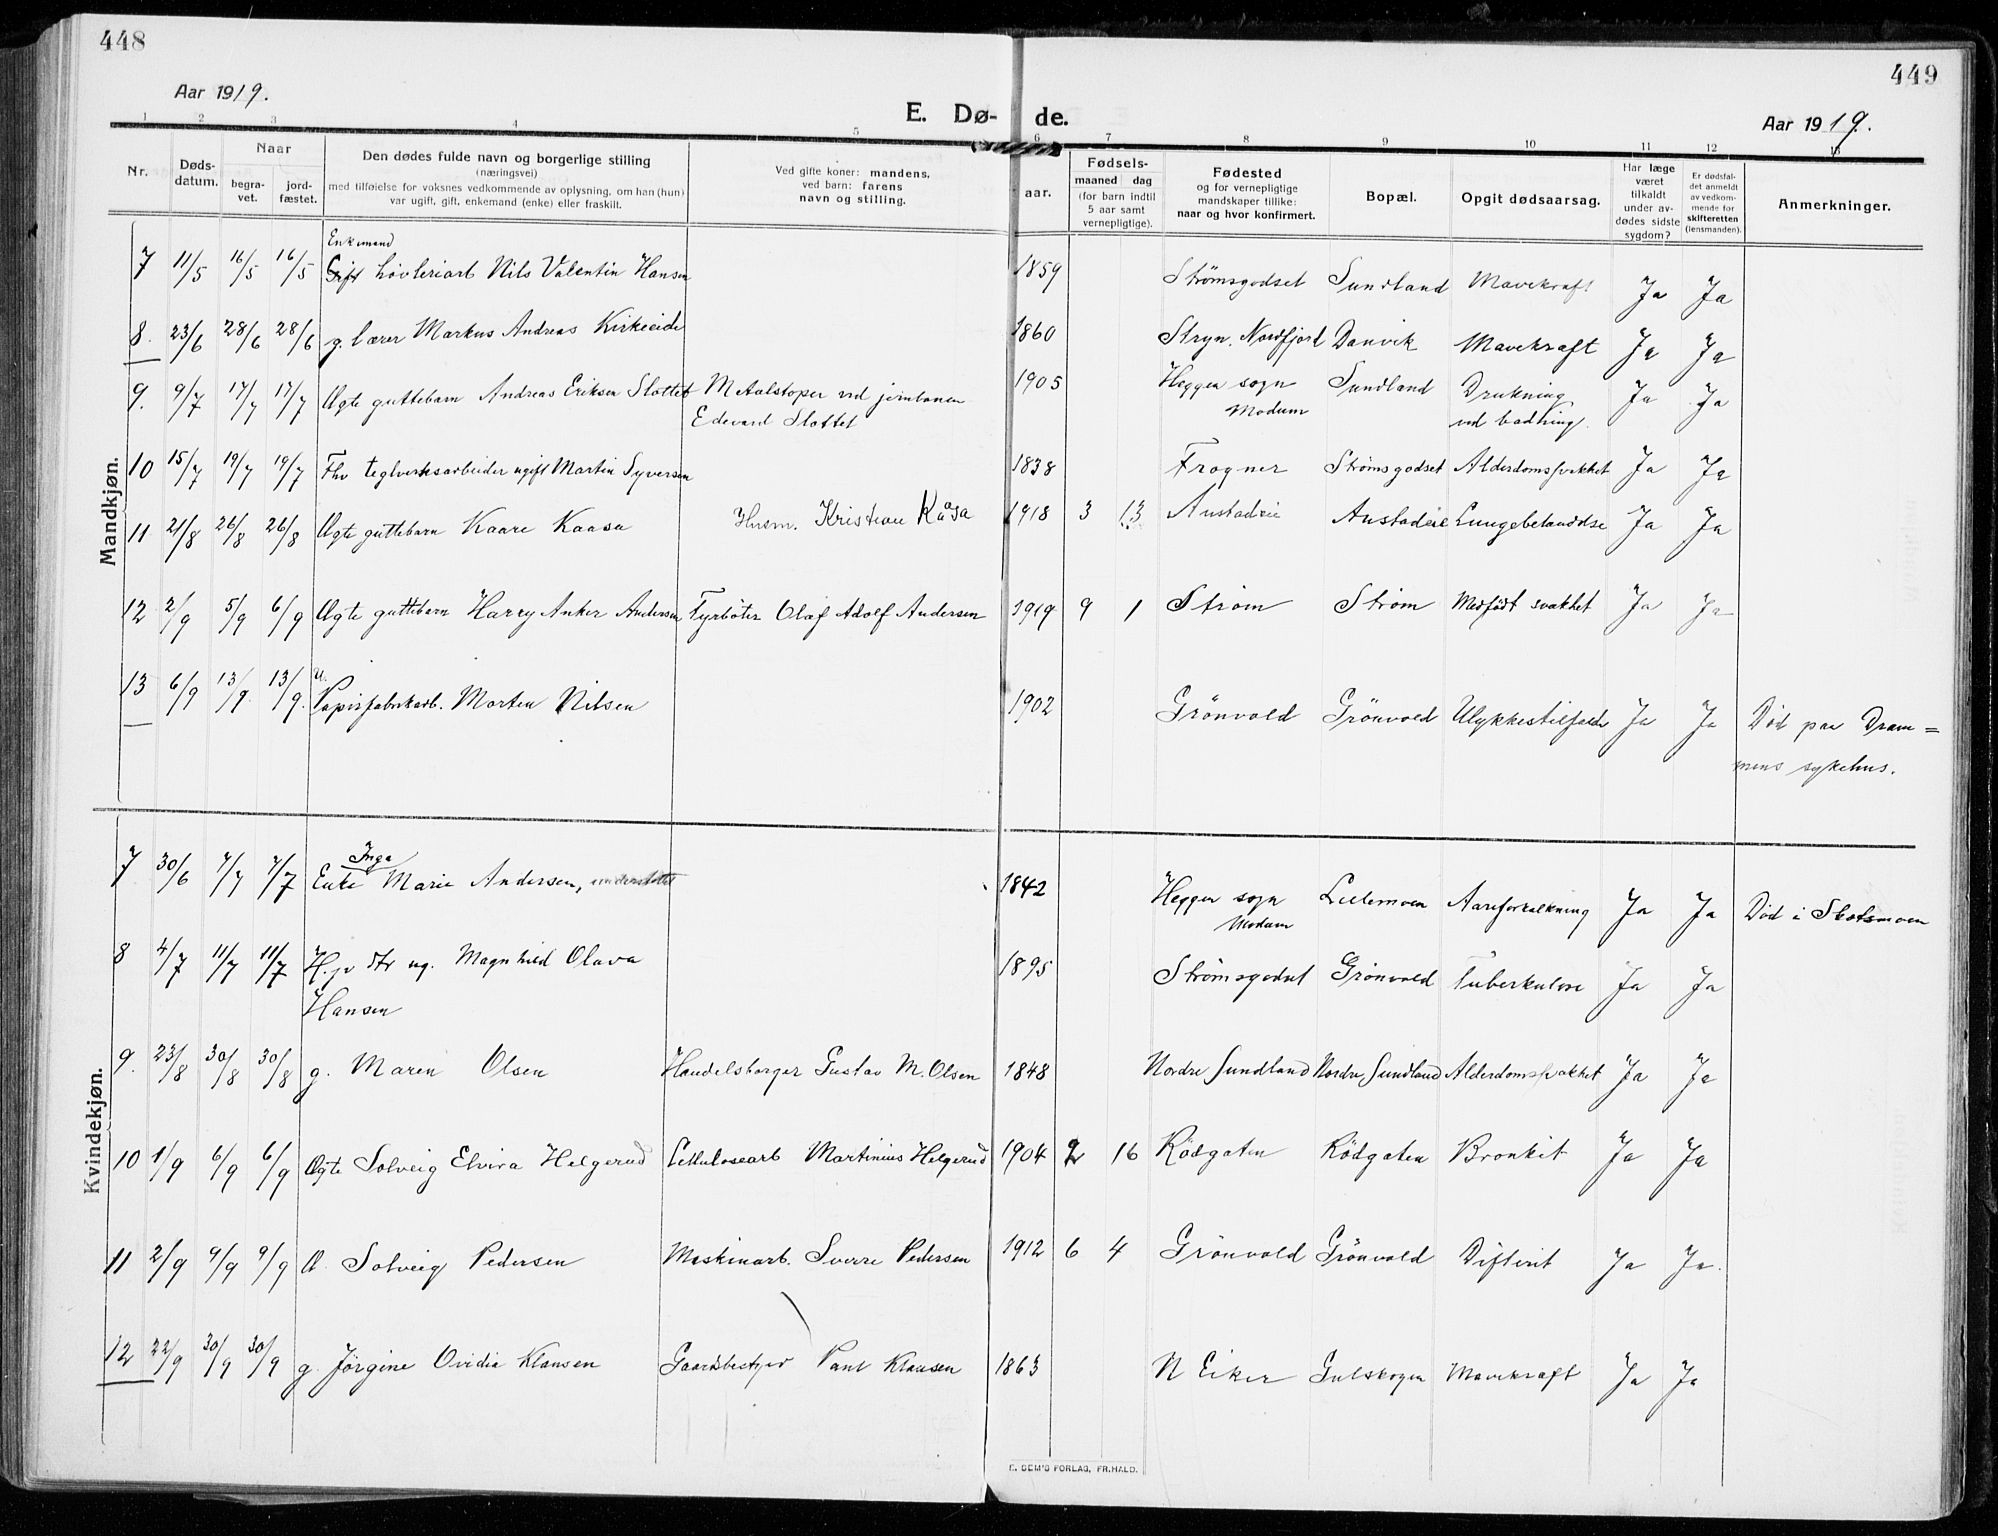 448
449
Aar 1919.
E. Dø- de.
Aar 1919.
1 2 3 4 5 6 7 8 9 10 11 12 13
Nr.
Døds-
datum.
Naar
begra-
vet.
jord-
fæstet.
Den dødes fulde navn og borgerlige stilling
(næringsvei)
med tilføielse for voksnes vedkommende av oplysning, om han (hun)
var ugift, gift, enkemand (enke) eller fraskilt.
Ved gifte koner: mandens,
ved barn: farens
navn og stilling.
aar.
Fødsels-
maaned dag
(for barn indtil
5 aar samt
vernepligtige).
Fødested
og for vernepligtige
mandskaper tillike:
naar og hvor konfirmert.
Bopæl.
Opgit dødsaarsag.
Har læge
været
tilkaldt
under av-
dødes sidste
sygdom?
Er dødsfal-
det anmeldt
av vedkom-
mende for
skifteretten
(lensmanden).
Anmerkninger.
Mandkjøn.
Enkemand
7 11/5 16/5 16/5 Gift høvleriarb Nils Valentin Hansen 1859 Strømsgodset Sundland Mavekræft Ja Ja
8. 23/6 28/6 28/6 g. lærer Markus Andreas Kirkeeide 1860 Stryn. Nordfjord Danvik Mavekræft Ja Ja
9. 9/7 17/7 17/7 Ægte guttebarn Andreas Eriksen Slottet Metalstøper ved jernbanen 1905 Heggen sogn Sundland Drukning Ja Ja
Edevard Slottet Modum ved badning.
10 15/7 19/7 19/7 Fhv teglverksarbeider ugift Martin Syversen 1838 Frogner Strømsgodset Alderdomssvakhet Ja Ja
11 21/8 26/8 26/8 Ægte guttebarn Kaare Kaasa Husm. Kristian Kåsa 1918 3 13 Austadeie Austadeie Lungebetændelse Ja Ja
12 2/9 5/9 6/9 Ægte guttebarn Harry Anker Andersen Fyrbøter Olaf Adolf Andersen 1919 9 1 Strøm Strøm Medfødt svakhet Ja Ja
13 6/9 13/9. 13/9. u. Papirfabrikarb. Morten Nilsen 1902 Grönvold Grönvold Ulykkestilfælde Ja Ja Død paa Dram=
mens sykehus.
Kvindekjøn.
Inga
7 30/6 7/7 7/7 Enke Marie Andersen, understøttet 1842 Heggen sogn Lillemoen Aareforkalkning Ja Ja Død i Slotsmoen
Modum
8 4/7 11/7 11/7 Hjv dtr ug. Magnhild Olava 1895 Strömsgodset Grönvold Tuberkulose Ja Ja
Hansen
9. 23/8 30/8 30/8 g. Maren Olsen Handelsborger Gustav M. Olsen 1848 Nordre Sundland Nordre Sundland Alderdomssvakhet Ja Ja
10 1/9 6/9 6/9 Ægte Solveig Elvira Helgerud Cellulosearb Martinius Helgerud 1904 2 16 Rödgaten Rödgaten Bronkit Ja Ja
11 2/9 9/9 9/9 Æ. Solveig Pedersen Maskinarb. Sverre Pedersen 1912 6 4 Grönvold Grönvold Difterit Ja Ja.
12 22/9 30/9 30/9 g. Jørgine Ovidia Klausen Gaardsbestyrer Paul Klausen 1863 N Eiker Gulskogen Mavekræft Ja Ja
E. SEM'S FORLAG, FR.HALD.